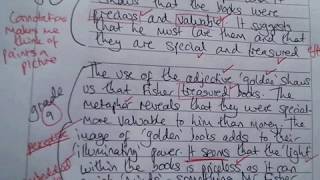 shows that the books were
precious and valuable. It suggests
that he must care them and that
they are special and treasured
Connotations
makes me
think of
paints a
picture
The use of the adjective 'golden' shows
us that Fisher treasured books. The
metaphor reveals that they were special
more valuable to him than money. The
image of 'golden' books adds to their
illuminating power. It seems that the light
within the books is priceless as it can
grade
9